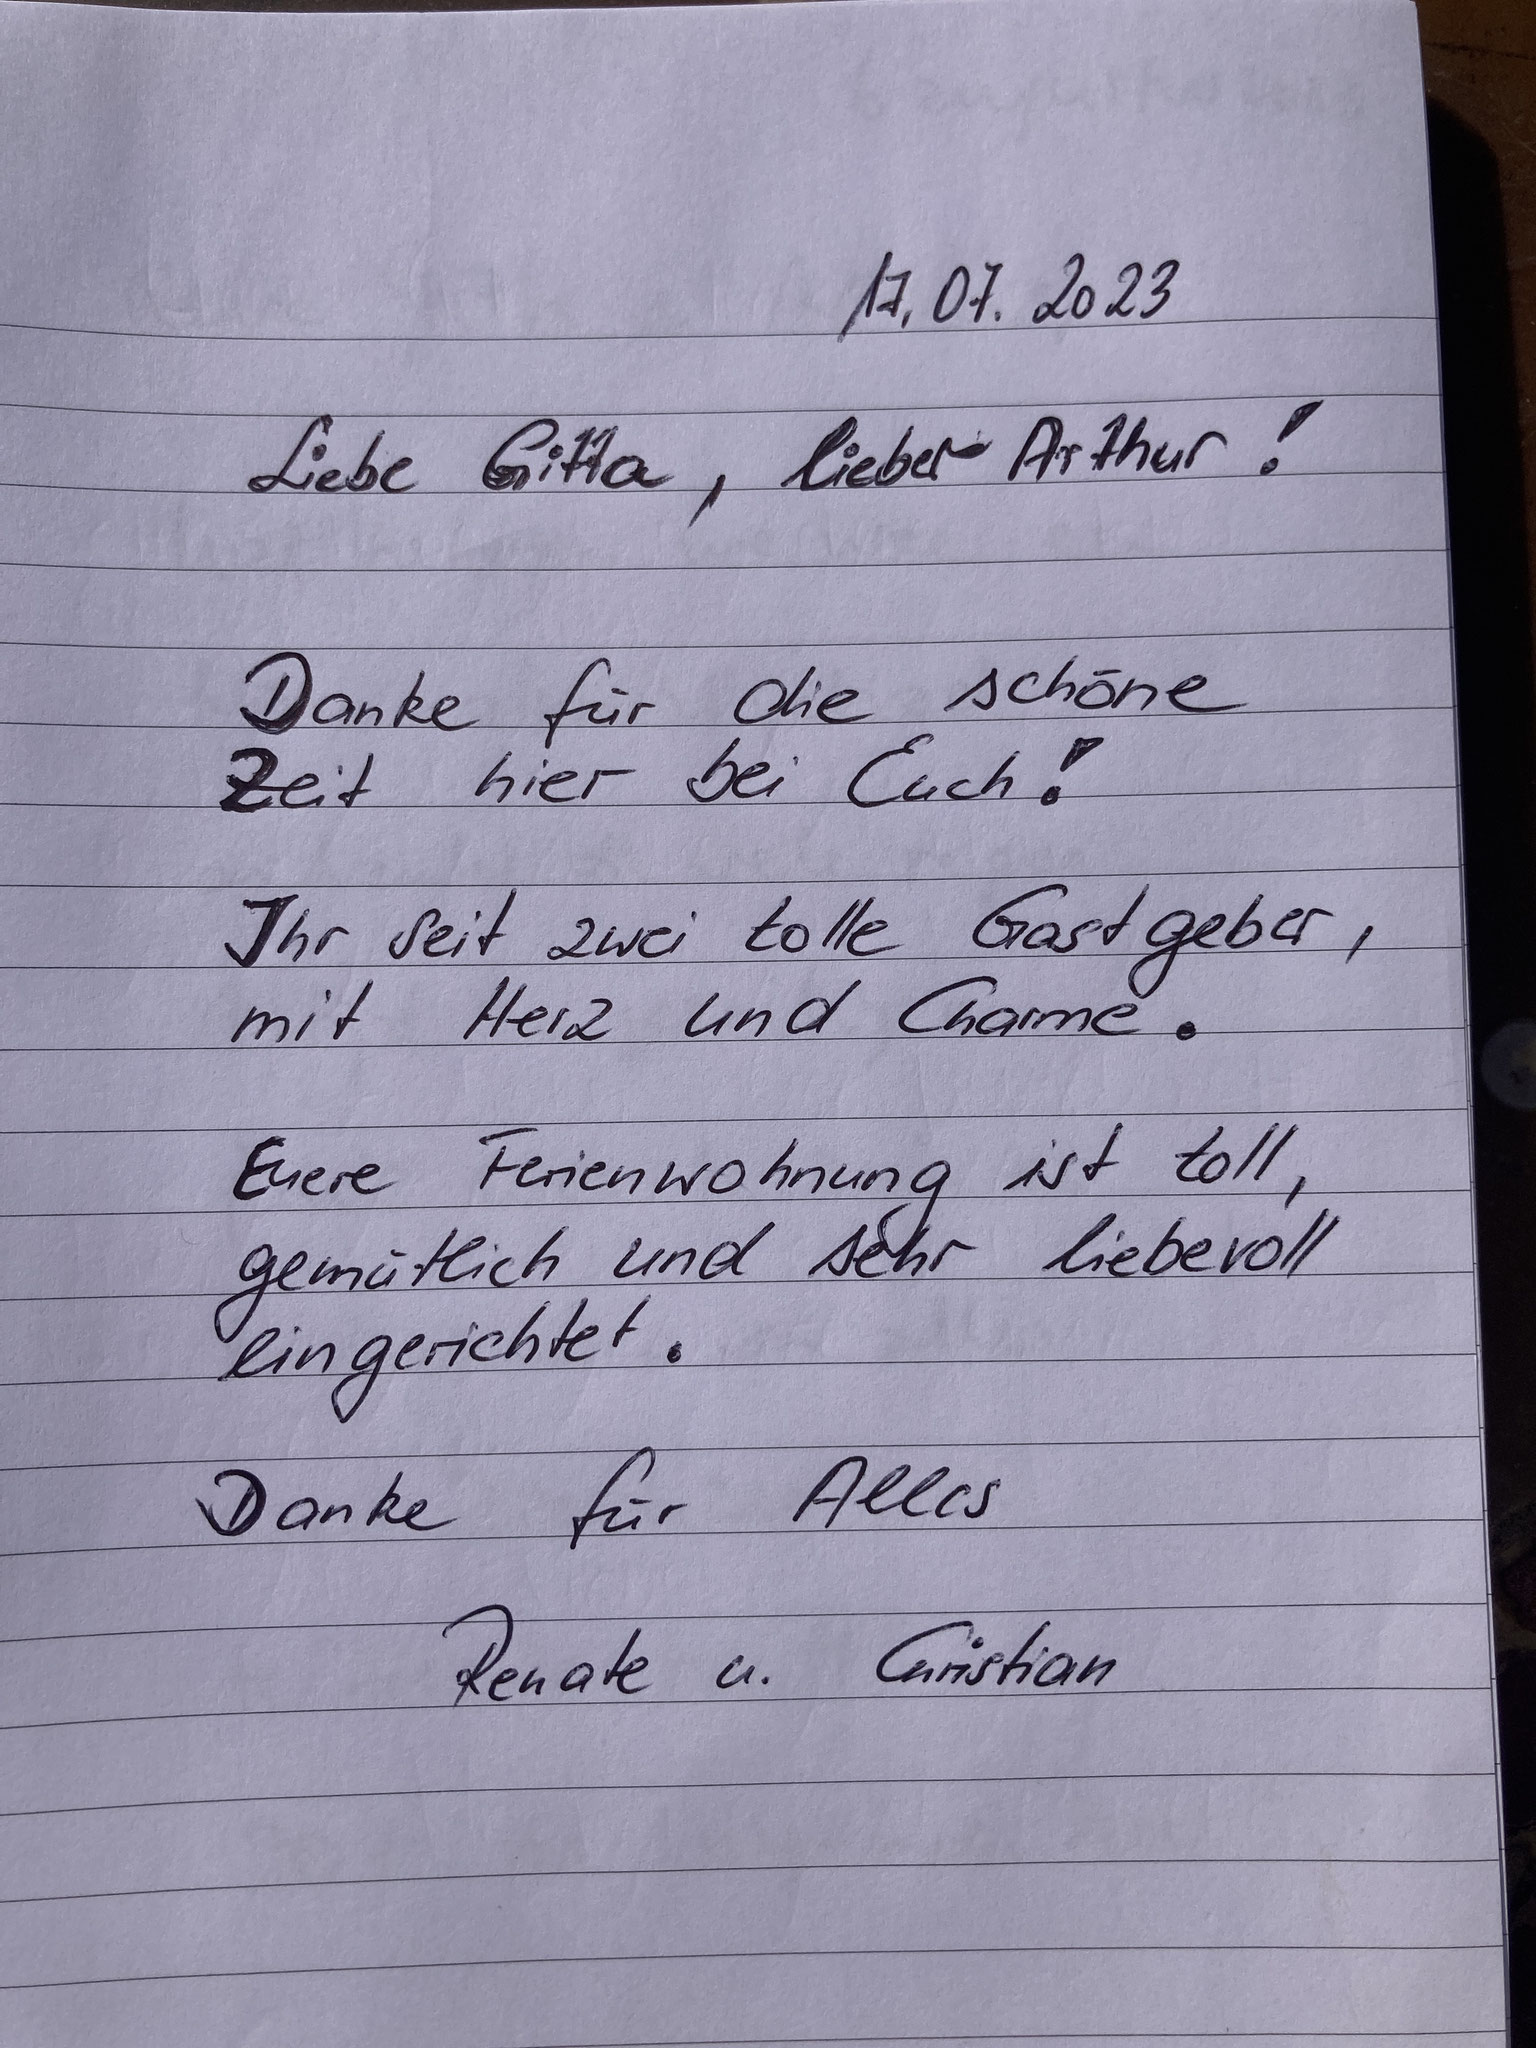 17.07.2023
Liebe Gitta, lieber Arthur!
Danke für die schöne
Zeit hier bei Euch!
Ihr seit zwei tolle Gastgeber,
mit Herz und Charme.
Euere Ferienwohnung ist toll,
gemütlich und sehr liebevoll
eingerichtet.
Danke für Alles
Renate u. Christian